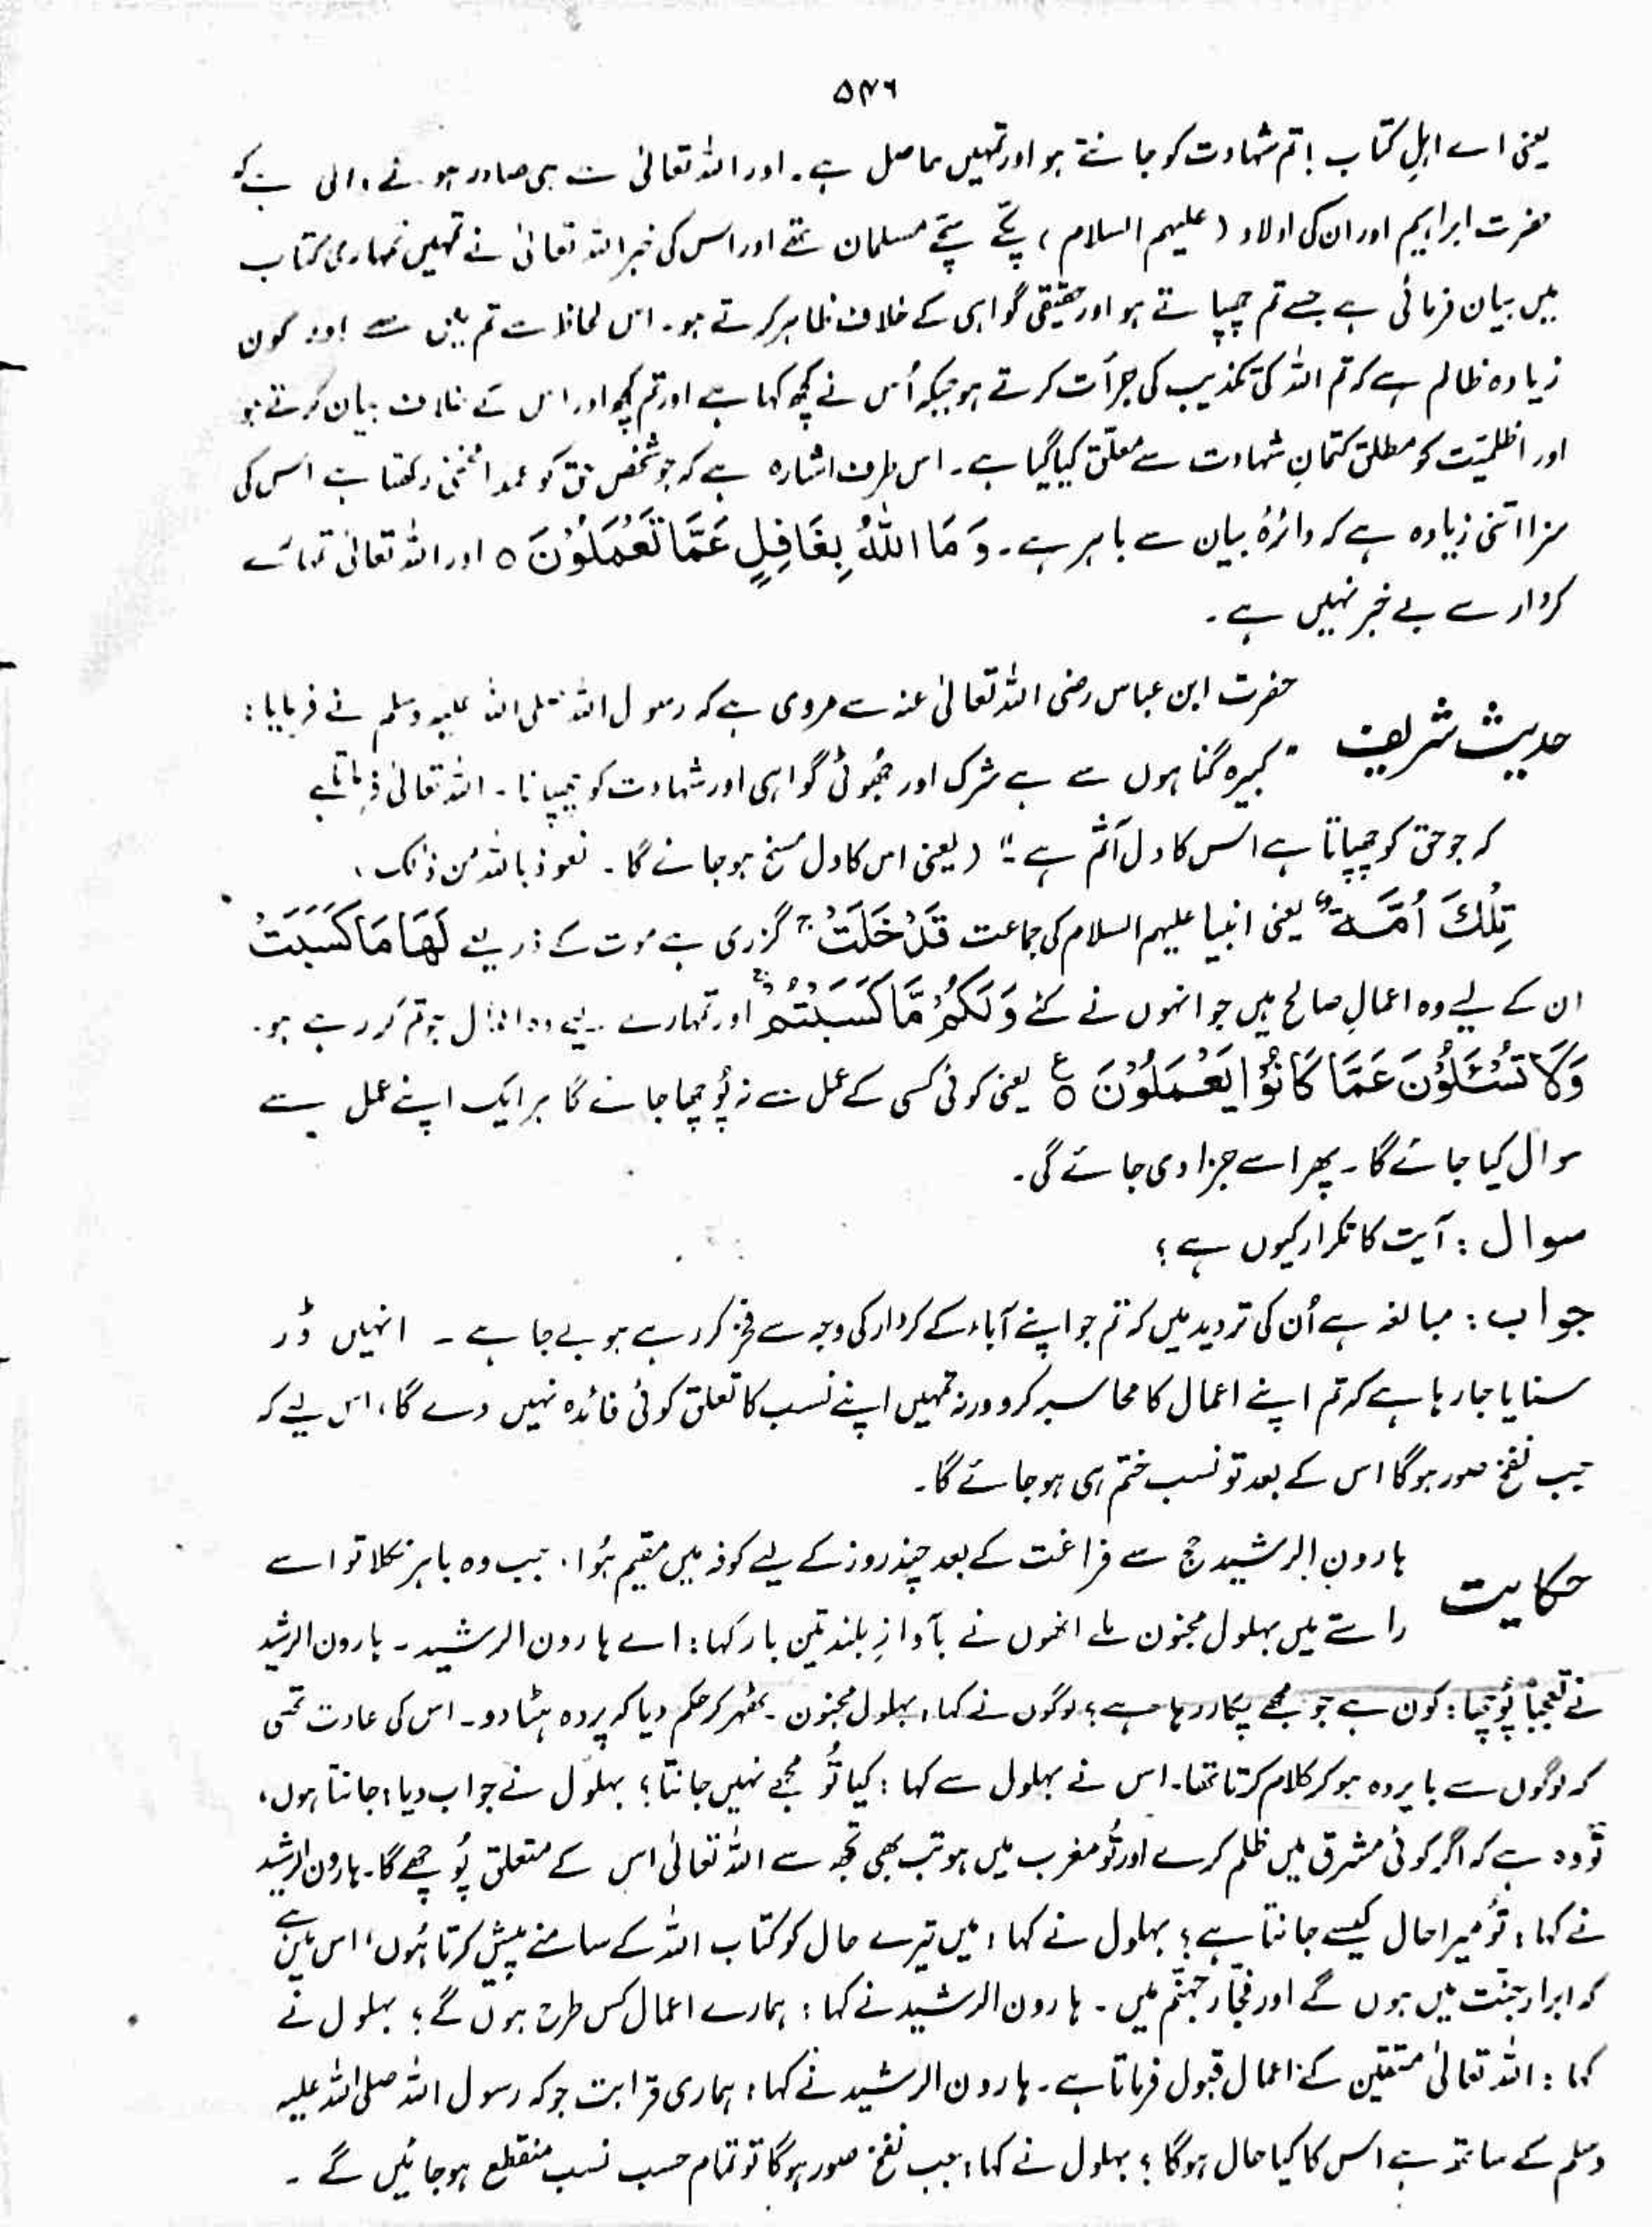 ۵۴۶
یعنی اے اہلِ کتاب! تم شہادت کو جانتے ہو اور تمہیں حاصل ہے۔ اور اللہ تعالیٰ سے ہی صادر ہونے والی ہے کہ
حضرت ابراہیم اور ان کی اولاد (علیہم السلام) پکے سچے مسلمان تھے اور اس کی خبر اللہ تعالیٰ نے تمہیں تمہاری کتاب
میں بیان فرمائی ہے جسے تم چھپاتے ہو اور حقیقی گواہی کے خلاف ظاہر کرتے ہو۔ اس لحاظ سے تم میں سے اور کون
زیادہ ظالم ہے کہ تم اللہ کی تکذیب کی جرأت کرتے ہو جبکہ اُس نے کچھ کہا ہے اور تم کچھ اور اس کے خلاف بیان کرتے ہو
اور اظلمیّت کو مطلق کتمانِ شہادت سے معلق کیا گیا ہے۔ اس طرف اشارہ ہے کہ جو شخص حق کو عمداً مخفی رکھتا ہے اس کی
سزا اتنی زیادہ ہے کہ دائرۂ بیان سے باہر ہے۔ وَمَا اللّٰهُ بِغَافِلٍ عَمَّا تَعْمَلُوْنَ ○ اور اللہ تعالیٰ تمہارے
کردار سے بے خبر نہیں ہے۔
حضرت ابن عباس رضی اللہ تعالیٰ عنہ سے مروی ہے کہ رسول اللہ صلی اللہ علیہ وسلم نے فرمایا:
حدیث شریف " کبیرہ گناہوں سے ہے شرک اور جھوٹی گواہی اور شہادت کو چھپانا۔ اللہ تعالیٰ فرماتا ہے
کہ جو حق کو چھپاتا ہے اس کا دل آثم ہے۔" (یعنی اس کا دل مسخ ہو جائے گا۔ نعوذ باللہ من ذٰلک)
تِلْكَ اُمَّةٌ یعنی انبیا علیہم السلام کی جماعت قَدْ خَلَتْ ۚ گزری ہے موت کے ذریعے لَهَا مَا كَسَبَتْ
ان کے لیے وہ اعمالِ صالح ہیں جو انہوں نے کئے وَلَكُمْ مَّا كَسَبْتُمْ ۚ اور تمہارے لیے وہ اعمال جو تم کر رہے ہو۔
وَلَا تُسْـَٔلُوْنَ عَمَّا كَانُوْا يَعْمَلُوْنَ ○ ع یعنی کوئی کسی کے عمل سے نہ پُوچھا جائے گا ہر ایک اپنے عمل سے
سوال کیا جائے گا۔ پھر اسے جزا دی جائے گی۔
سوال : آیت کا تکرار کیوں ہے؟
جواب : مبالغہ ہے اُن کی تردید میں کہ تم جو اپنے آباء کے کردار کی وجہ سے فخر کر رہے ہو بے جا ہے ۔ انہیں ڈر
سنایا جا رہا ہے کہ تم اپنے اعمال کا محاسبہ کرو ورنہ تمہیں اپنے نسب کا تعلق کوئی فائدہ نہیں دے گا، اس لیے کہ
جب نفخ صور ہوگا اس کے بعد تو نسب ختم ہی ہو جائے گا۔
ہارون الرشید حج سے فراغت کے بعد چند روز کے لیے کوفہ میں مقیم ہُوا۔ جب وہ باہر نکلا تو اسے
حکایت راستے میں بہلول مجنون ملے انھوں نے بآوازِ بلند تین بار کہا: اے ہارون الرشید ۔ ہارون الرشید
نے تعجباً پُوچھا: کون ہے جو مجھے پکار رہا ہے؟ لوگوں نے کہا: بہلول مجنون۔ ٹھہر کر حکم دیا کہ پردہ ہٹا دو۔ اس کی عادت تھی
کہ لوگوں سے باپردہ ہو کر کلام کرتا تھا۔ اس نے بہلول سے کہا: کیا تُو مجھے نہیں جانتا؟ بہلول نے جواب دیا: جانتا ہوں،
تُو وہ ہے کہ اگر کوئی مشرق میں ظلم کرے اور تُو مغرب میں ہو تب بھی تجھ سے اللہ تعالیٰ اس کے متعلق پُوچھے گا۔ ہارون الرشید
نے کہا: تُو میرا حال کیسے جانتا ہے؟ بہلول نے کہا: میں تیرے حال کو کتاب اللہ کے سامنے پیش کرتا ہُوں، اس میں ہے
کہ ابرار جنت میں ہوں گے اور فجّار جہنّم میں ۔ ہارون الرشید نے کہا: ہمارے اعمال کس طرح ہوں گے؟ بہلول نے
کہا : اللہ تعالیٰ متقین کے اعمال قبول فرماتا ہے۔ ہارون الرشید نے کہا: ہماری قرابت جو کہ رسول اللہ صلی اللہ علیہ
وسلم کے ساتھ ہے اس کا کیا حال ہوگا؟ بہلول نے کہا: جب نفخ صور ہوگا تو تمام حسب نسب منقطع ہو جائیں گے ۔